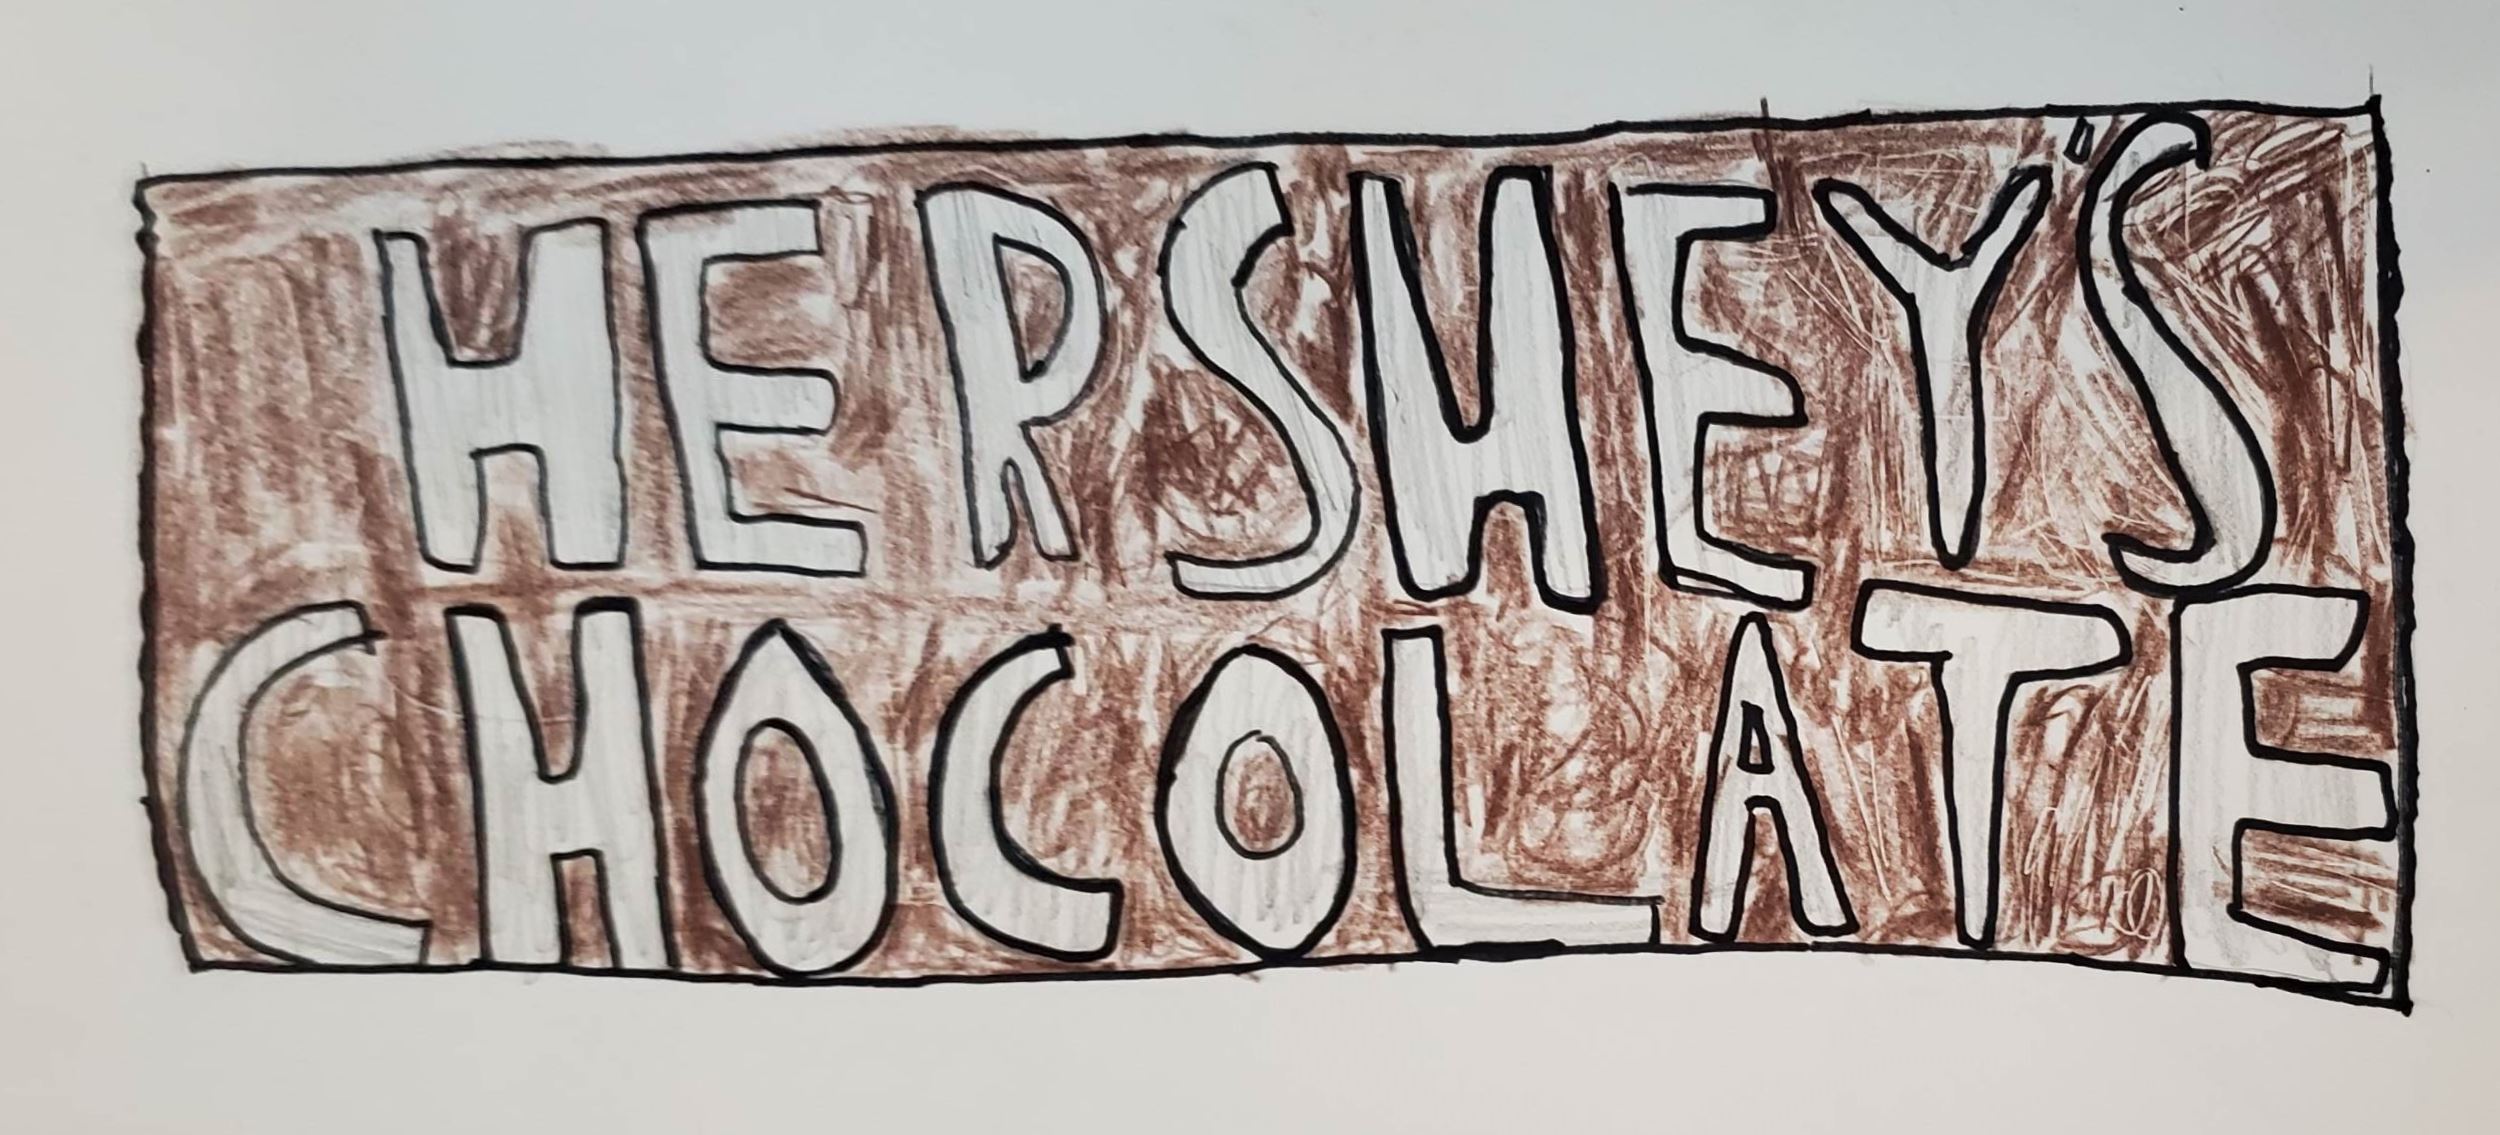 HERSHEY'S
CHOCOLATE